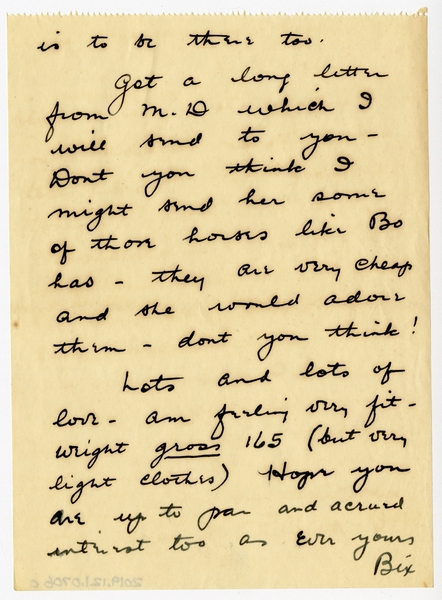 is to be there too.
Got a long letter
from M.D which I
will send to you -
Dont you think I
might send her some
of those horses like Bo
has - they are very cheap
and she would adore
them - dont you think!
Lots and lots of
love - am feeling very fit -
weight gross 165 (but very
light clothes) Hope you
are up to par and acrued
interest too as Ever yours
Bix
2019.121.0706 c